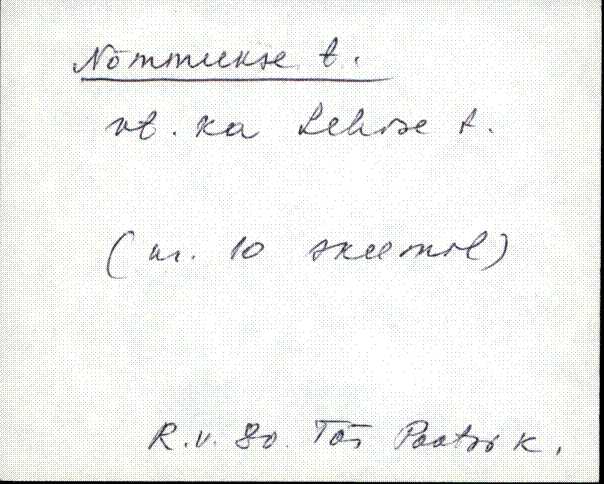 Nõmmukse t.
vt. ka Lehise t.
(nr. 10 skeemil)
R.V. 80. Tõs Pootsi k.